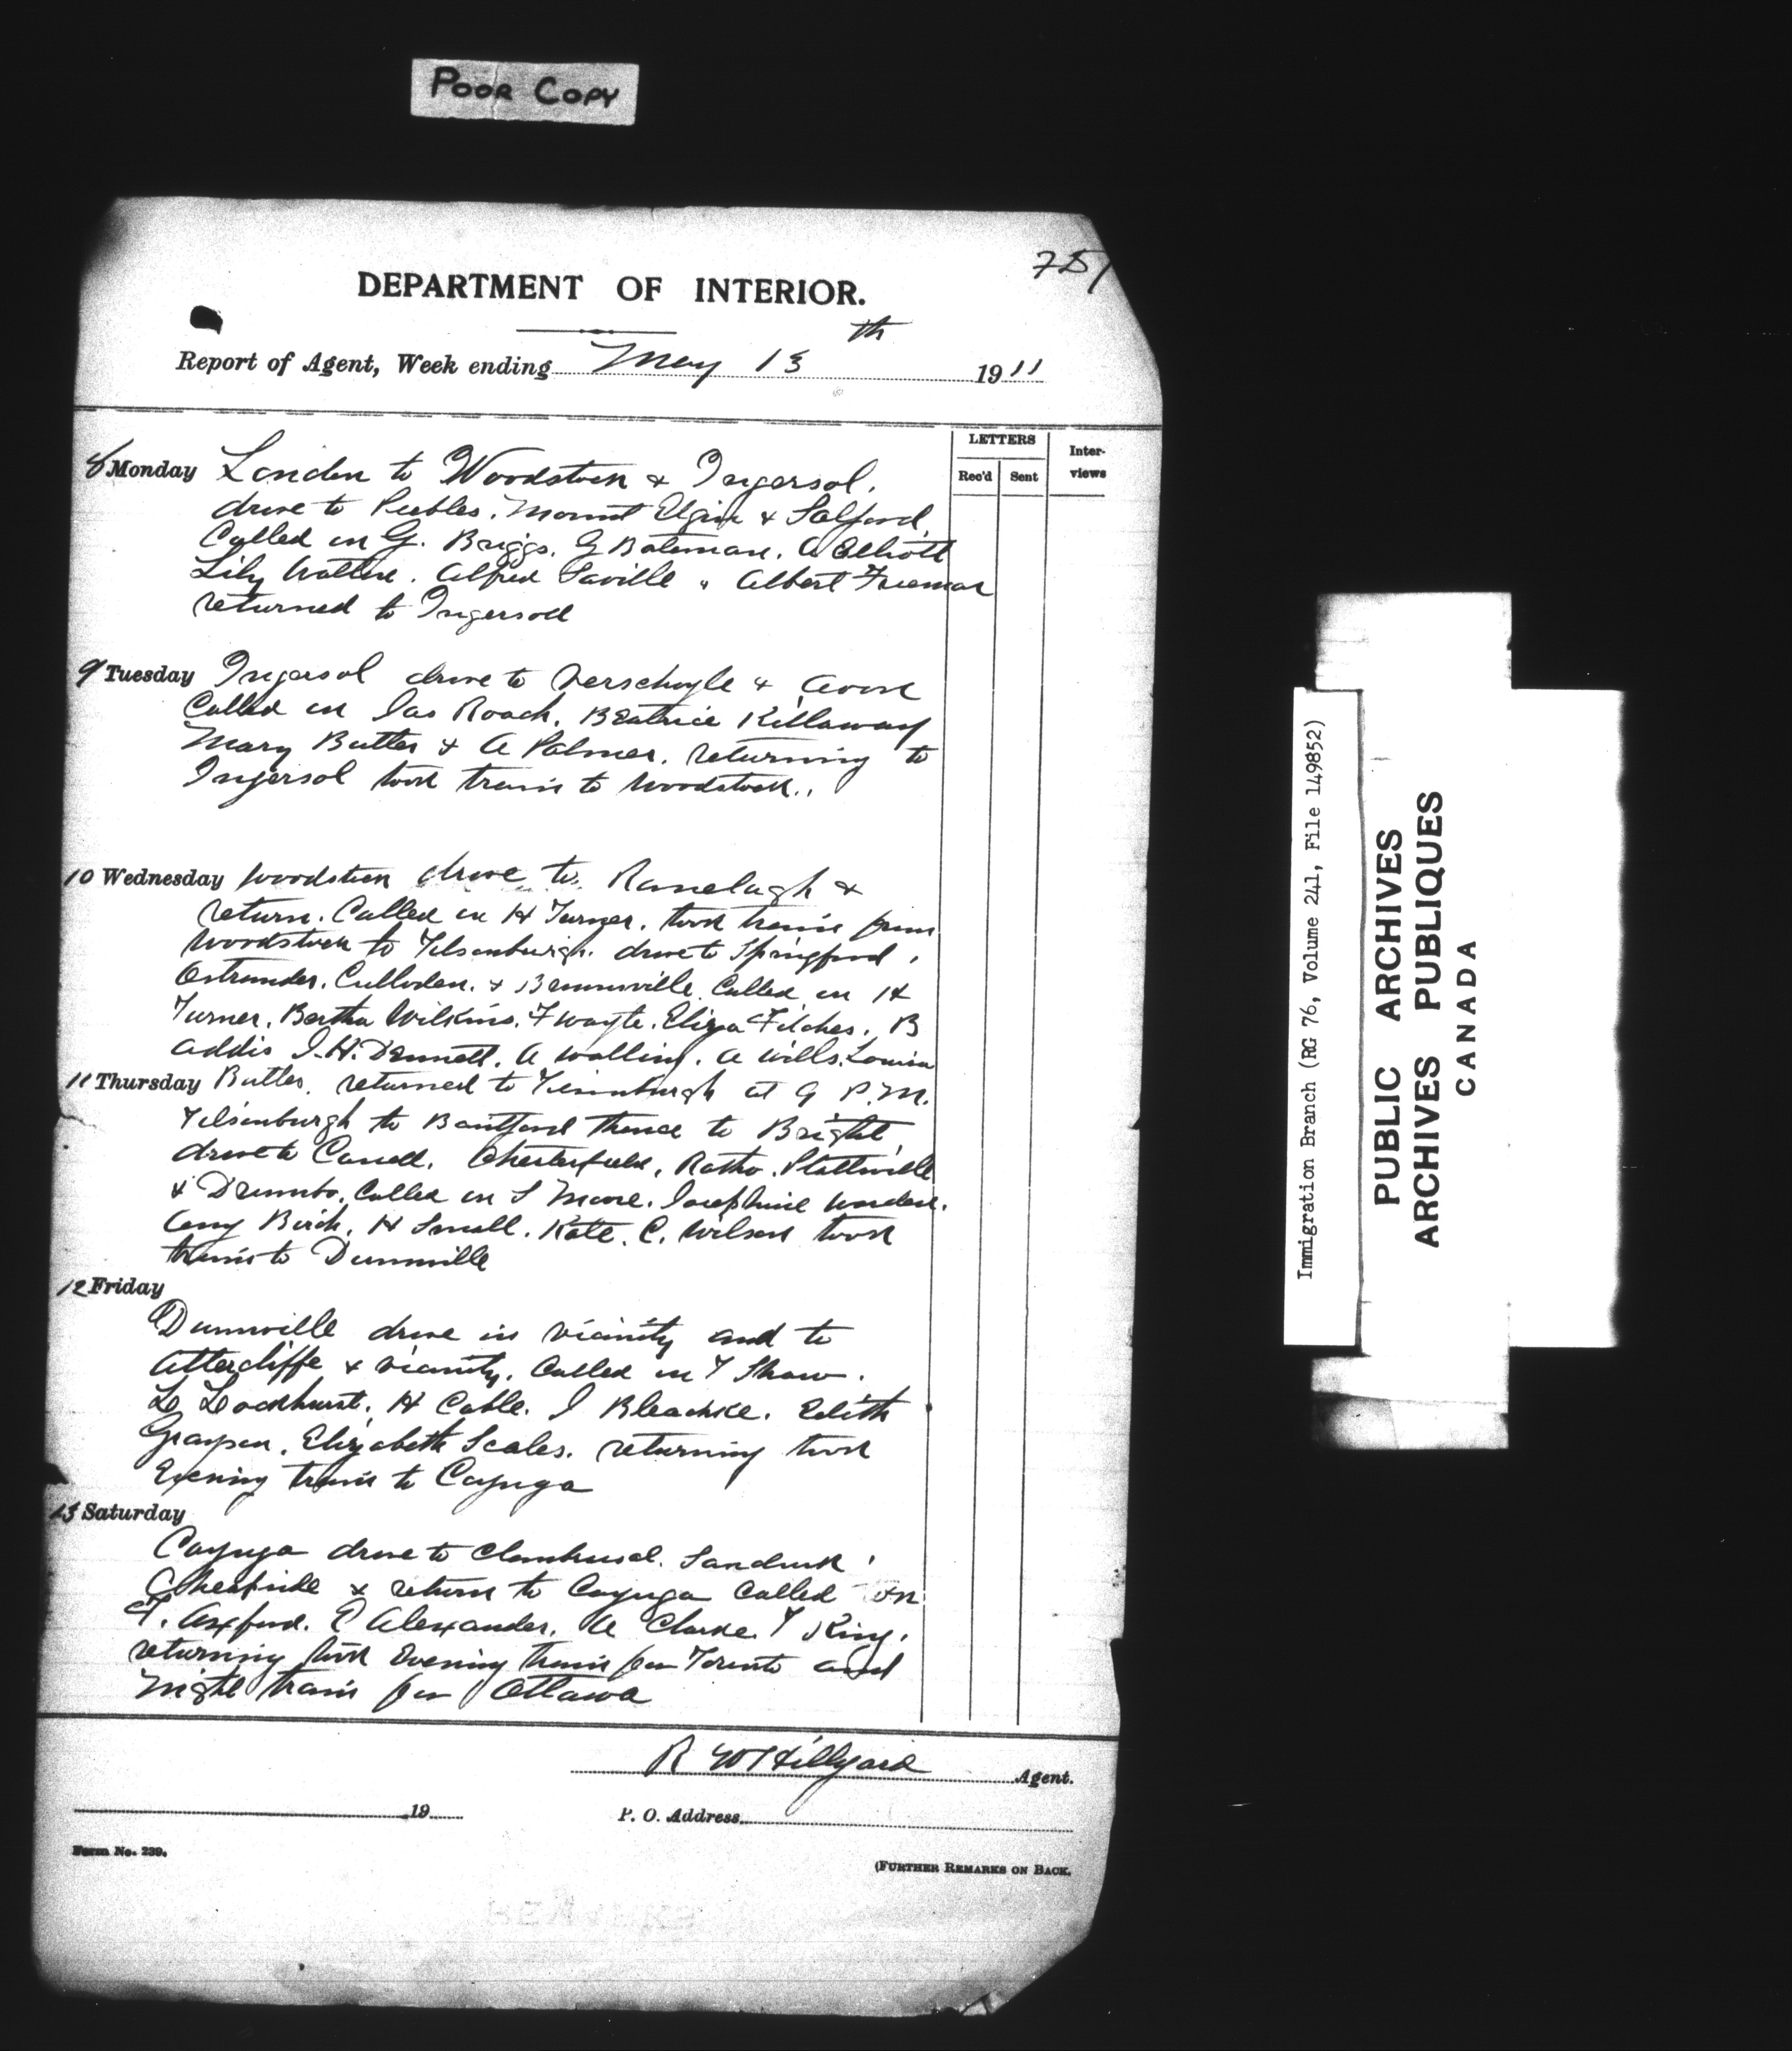 POOR COPY
751
DEPARTMENT OF INTERIOR.
Report of Agent, Week ending May 13th 1911
LETTERS
Inter-views
Rec'd Sent
8 Monday London to Woodstock & Ingersol,
drive to Peebles. Mount Elgin & Salford.
Called on G. Briggs. G Bateman. A Elliott
Lily . Alfred Saville " Albert Freeman
returned to Ingersoll
9 Tuesday Ingersol drive to Verschoyle & Avon
Called on Jas Roach. Beatrice Killaway
Mary Butler & A Palmer. returning to
Ingersol took train to Woodstock..
10 Wednesday Woodstock drive to Ranelagh &
return. Called on H Turner. took train from
Woodstock to Tilsonburgh. drive to Springford,
Ostrander. Culloden. & Brownsville. Called on H
Turner. Bertha Wilkins. F Wayte. Eliza Filches. B
Addis J. H. Dennett. A Walling. A Wills. Louisa
11 Thursday Butler. returned to Tilsonburgh at 9 P.M.
Tilsonburgh to Brantford thence to Bright,
drive to . Chesterfield, Ratho. Plattsville
& Drumbo. Called on S Moore. Josephine .
Amy Birch. H Small. Kate. C. Wilson took
train to Dunnville
12 Friday
Dunnville drive in vicinity and to
Attercliffe & vicinity. Called on T Shaw.
L Lockhurst. H Cable. J . Edith
Grayson. Elizabeth Scales. returning took
Evening train to Cayuga
13 Saturday
Cayuga drive to . Sandusk,
Cheapside & return to Cayuga Called on
F. Axford. E Alexander. A Clarke. T King.
returning took Evening train for Toronto and
Night train for Ottawa
R W Hillyard Agent.
19
P. O. Address
Form No. 239.
(FURTHER REMARKS ON BACK.
Immigration Branch (RG 76, Volume 241, File 149852)
PUBLIC ARCHIVES
ARCHIVES PUBLIQUES
CANADA